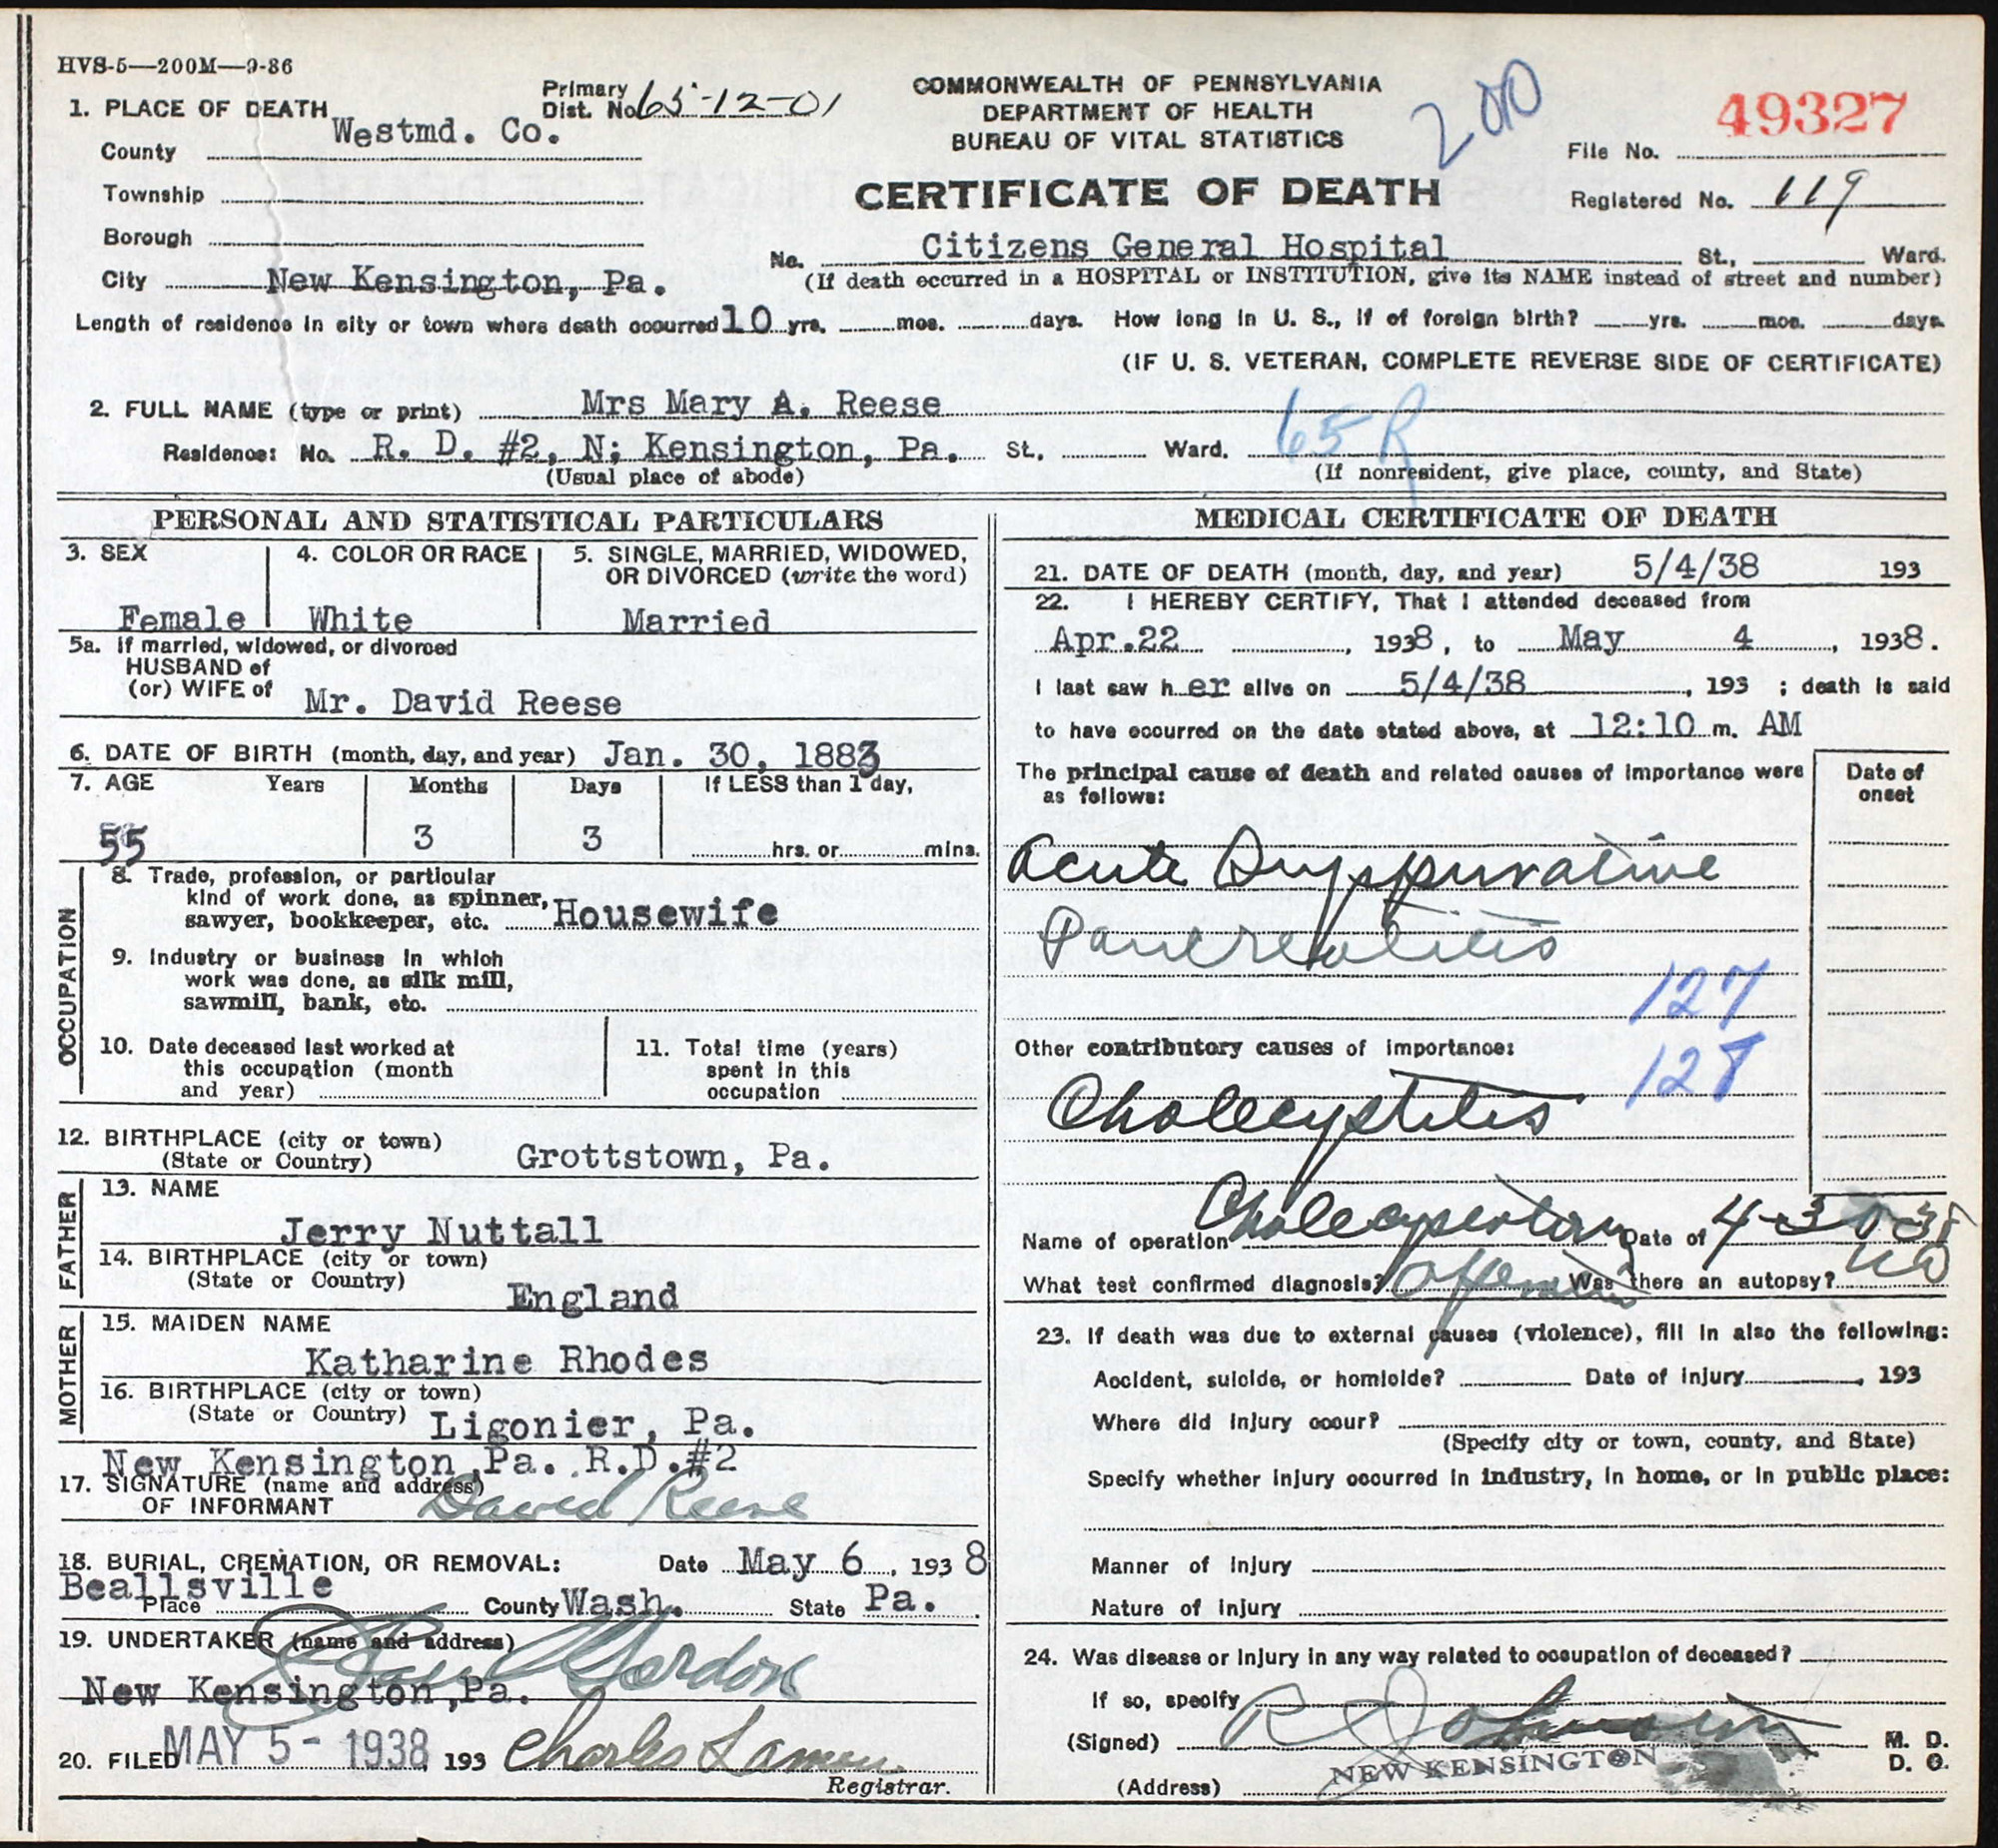 HVS-5—200M—9-36
1. PLACE OF DEATH
Primary Dist. No. 65-12-01
COMMONWEALTH OF PENNSYLVANIA
DEPARTMENT OF HEALTH
BUREAU OF VITAL STATISTICS
200
49327
File No.
County Westmd. Co.
Township
CERTIFICATE OF DEATH
Registered No. 119
Borough
No. Citizens General Hospital St., Ward.
City New Kensington, Pa.
(If death occurred in a HOSPITAL or INSTITUTION, give its NAME instead of street and number)
Length of residence in city or town where death occurred 10 yrs. mos. days. How long in U. S., if of foreign birth? yrs. mos. days.
(IF U. S. VETERAN, COMPLETE REVERSE SIDE OF CERTIFICATE)
2. FULL NAME (type or print) Mrs Mary A. Reese
65 R
Residence: No. R. D. #2, N; Kensington, Pa. St. Ward.
(Usual place of abode) (If nonresident, give place, county, and State)
PERSONAL AND STATISTICAL PARTICULARS
3. SEX 4. COLOR OR RACE 5. SINGLE, MARRIED, WIDOWED,
OR DIVORCED (write the word)
Female White Married
5a. If married, widowed, or divorced
HUSBAND of
(or) WIFE of Mr. David Reese
6. DATE OF BIRTH (month, day, and year) Jan. 30, 1883
7. AGE Years Months Days If LESS than 1 day,
55 3 3 hrs. or mins.
OCCUPATION
8. Trade, profession, or particular
kind of work done, as spinner,
sawyer, bookkeeper, etc. Housewife
9. Industry or business in which
work was done, as silk mill,
sawmill, bank, etc.
10. Date deceased last worked at
this occupation (month
and year)
11. Total time (years)
spent in this
occupation
12. BIRTHPLACE (city or town)
(State or Country) Grottstown, Pa.
FATHER
13. NAME
Jerry Nuttall
14. BIRTHPLACE (city or town)
(State or Country)
England
MOTHER
15. MAIDEN NAME
Katharine Rhodes
16. BIRTHPLACE (city or town)
(State or Country) Ligonier, Pa.
New Kensington, Pa. R.D.#2
17. SIGNATURE (name and address)
OF INFORMANT David Reese
18. BURIAL, CREMATION, OR REMOVAL: Date May 6, 1938
Beallsville
Place County Wash. State Pa.
19. UNDERTAKER (name and address)
Gordon
New Kensington, Pa.
20. FILED MAY 5 - 1938 193 Charles
Registrar.
MEDICAL CERTIFICATE OF DEATH
21. DATE OF DEATH (month, day, and year) 5/4/38 193
22. I HEREBY CERTIFY, That I attended deceased from
Apr. 22, 1938, to May 4, 1938.
I last saw her alive on 5/4/38, 193 ; death is said
to have occurred on the date stated above, at 12:10 m. AM
The principal cause of death and related causes of importance were
as follows:
Date of
onset
Acute Suppurative
Pancreatitis
127
Other contributory causes of importance:
128
Cholecystitis
Name of operation Date of 4-30-38
What test confirmed diagnosis? Operation Was there an autopsy? no
23. If death was due to external causes (violence), fill in also the following:
Accident, suicide, or homicide? Date of injury, 193
Where did injury occur?
(Specify city or town, county, and State)
Specify whether injury occurred in industry, in home, or in public place:
Manner of injury
Nature of injury
24. Was disease or injury in any way related to occupation of deceased?
If so, specify
(Signed) M. D.
D. O.
(Address) NEW KENSINGTON